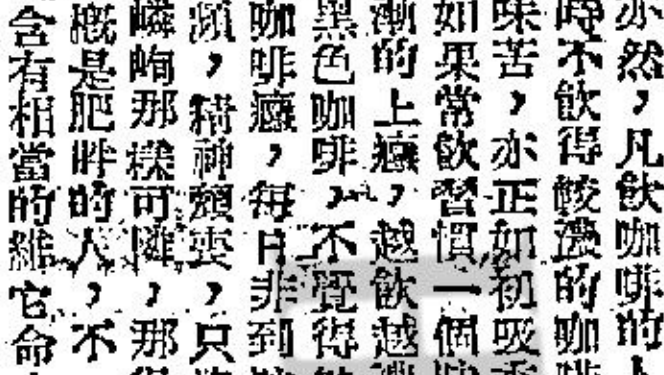 亦然，凡飲咖啡的
時不飲得較濃的咖啡
味苦，亦正如初吸
如果常飲習慣一個
漸的上癮，越飲越
黑色咖啡，不覺得
咖啡癮，每日非到
頻，精神頹喪，只
嶙峋那樣可
概是肥胖的人，不
含有相當的維它命